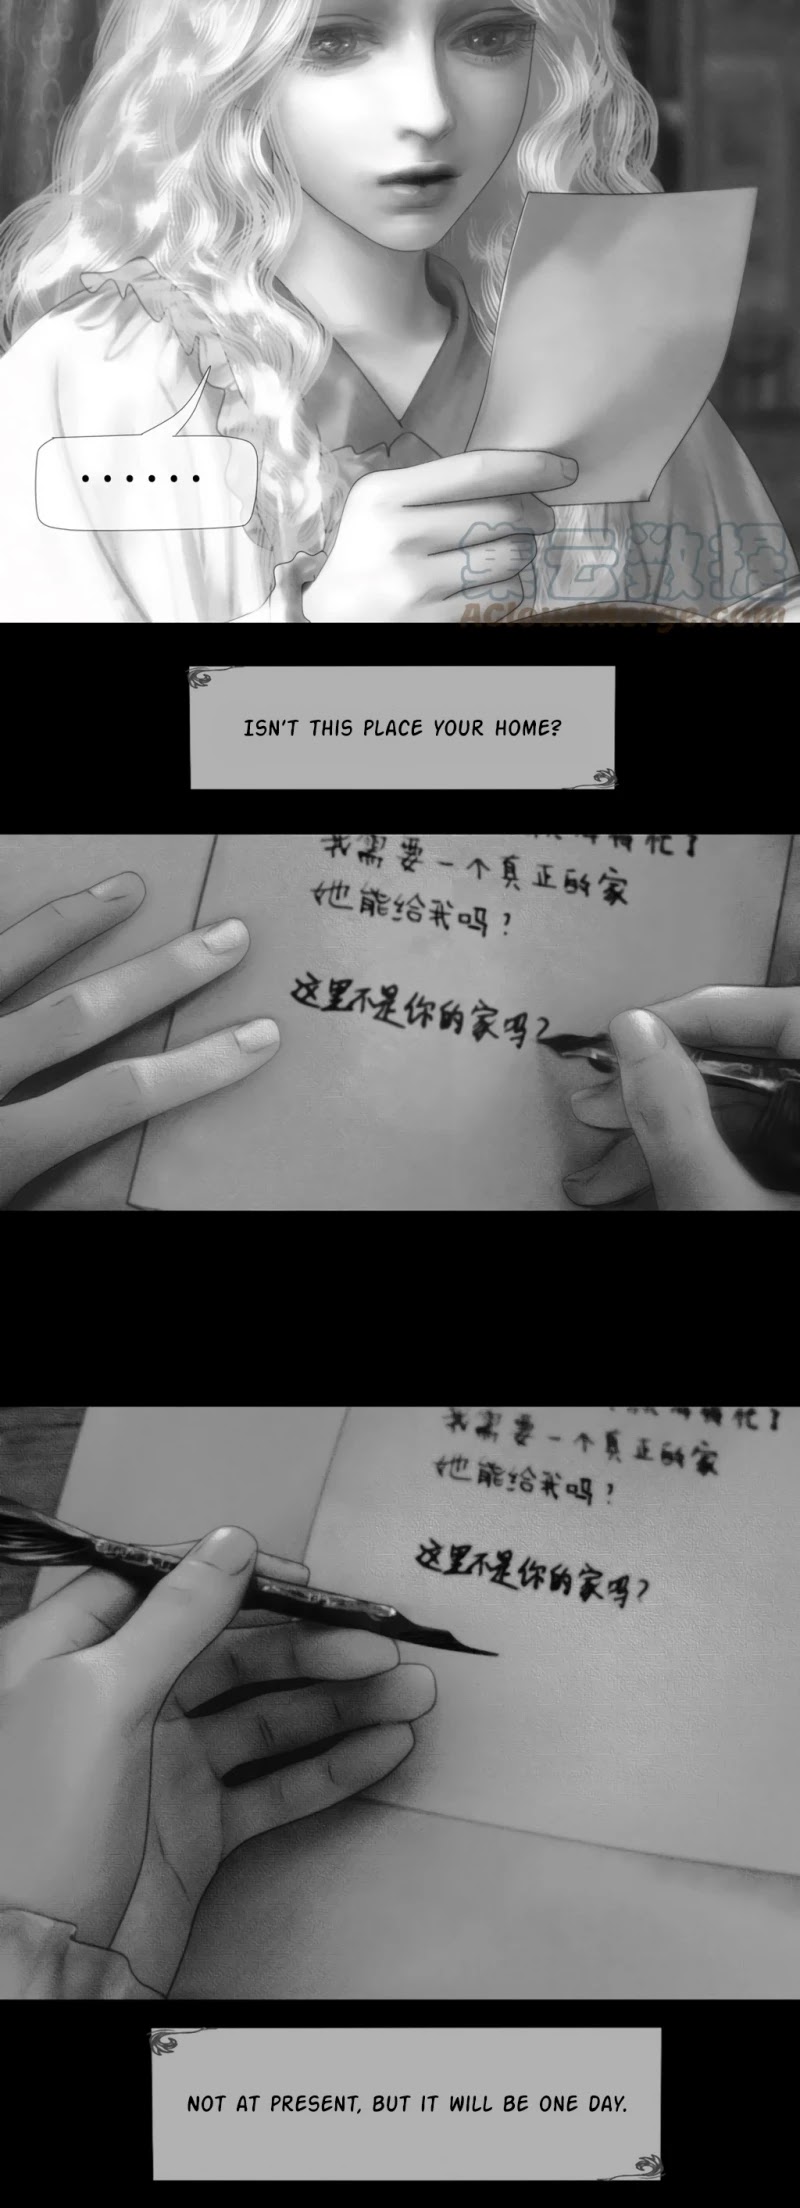 ......
集云数据
AcloudMerge.com
ISN'T THIS PLACE YOUR HOME?
我需要一个真正的家
她能给我吗?
这里不是你的家吗?
我需要一个真正的家
她能给我吗?
这里不是你的家吗?
NOT AT PRESENT, BUT IT WILL BE ONE DAY.